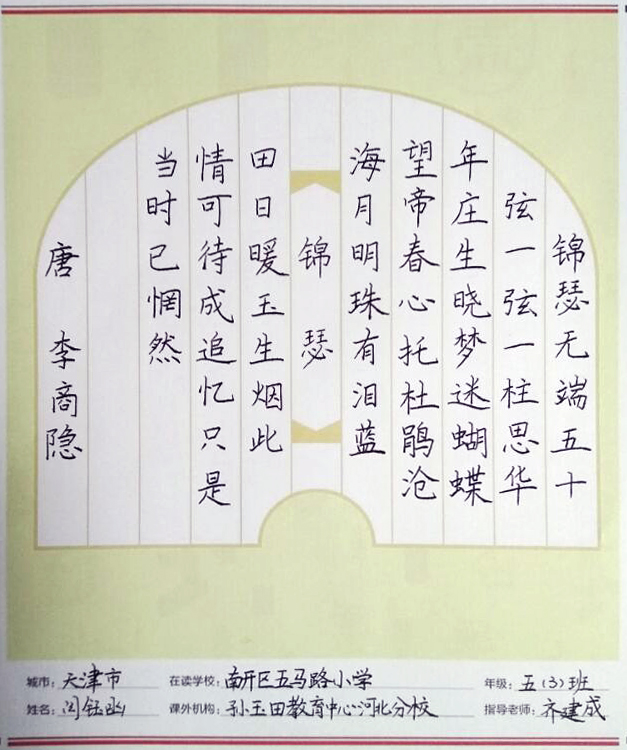 锦瑟无端五十
弦一弦一柱思华
年庄生晓梦迷蝴蝶
望帝春心托杜鹃沧
海月明珠有泪蓝
锦瑟
田日暖玉生烟此
情可待成追忆只是
当时已惘然
唐 李商隐
城市：天津市 在读学校：南开区五马路小学 年级：五（3）班
姓名：闫钰凼 课外机构：孙玉田教育中心河北分校 指导老师：齐建成